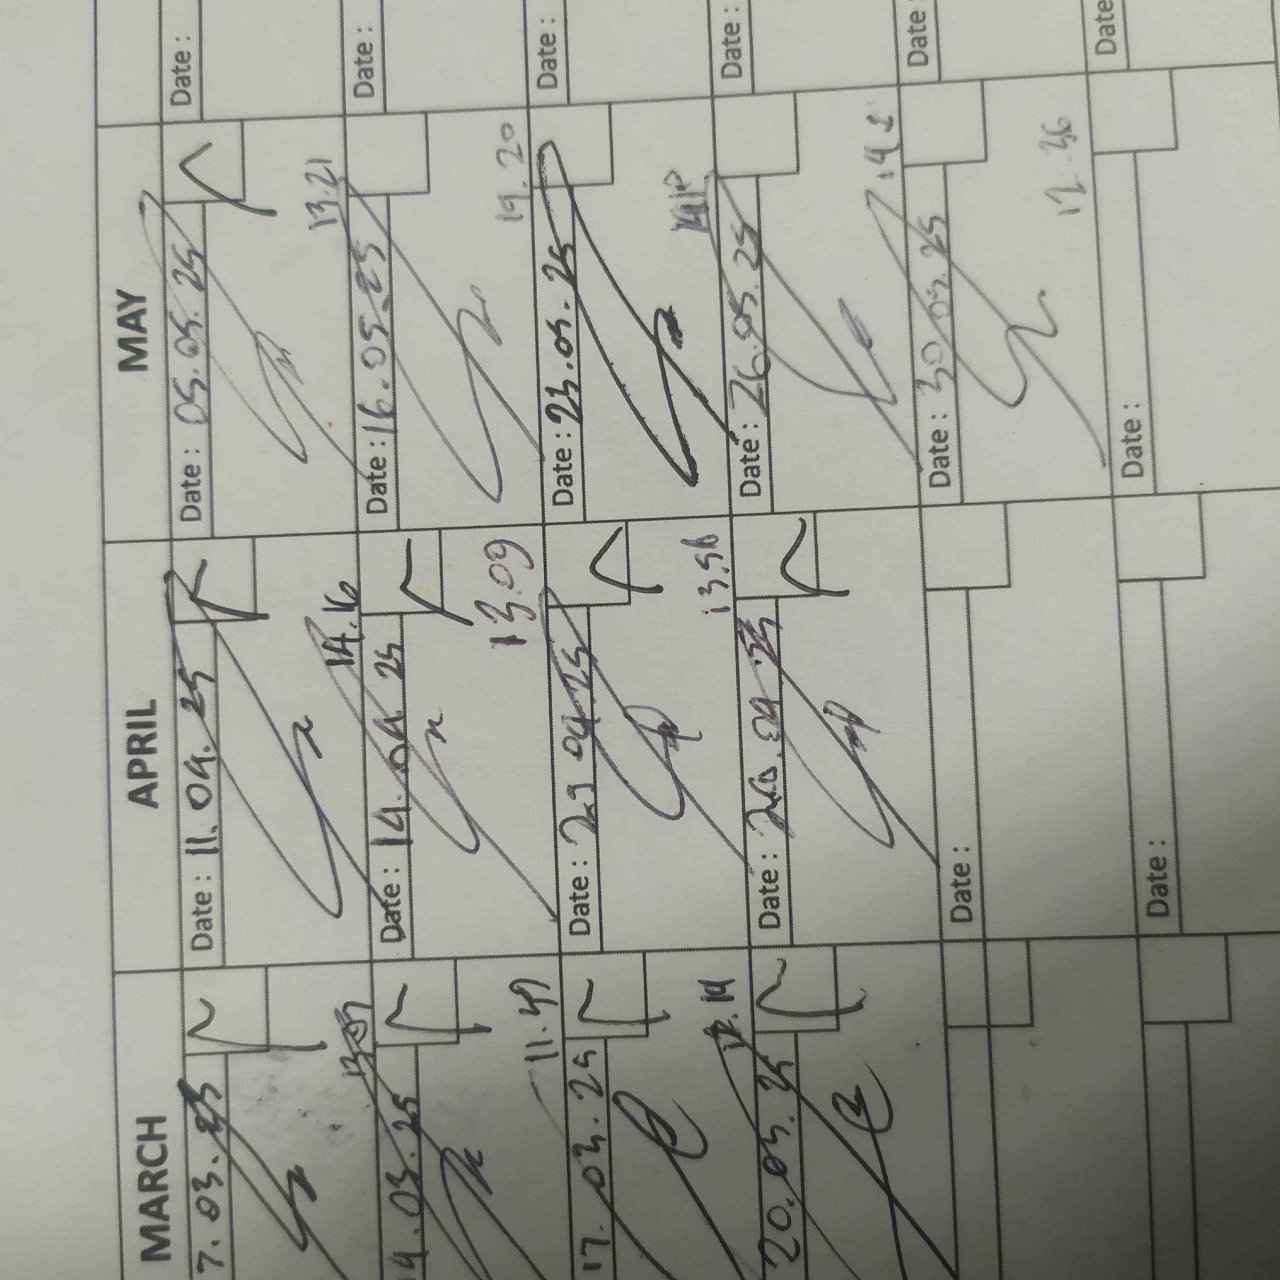 MARCH
7.03.25
13.07
14.03.25
11.49
17.03.25
12.14
20.03.25
APRIL
Date : 11.04.25
14.16
Date : 14.04.25
13.09
Date : 29.04.25
13.56
Date :
Date :
Date :
MAY
Date : 05.05.25
13.21
Date : 16.05.25
19.20
Date : 23.05.25
Date : 26.05.25
Date : 30.05.25
12.36
Date :
Date :
Date :
Date :
Date :
Date :
Date